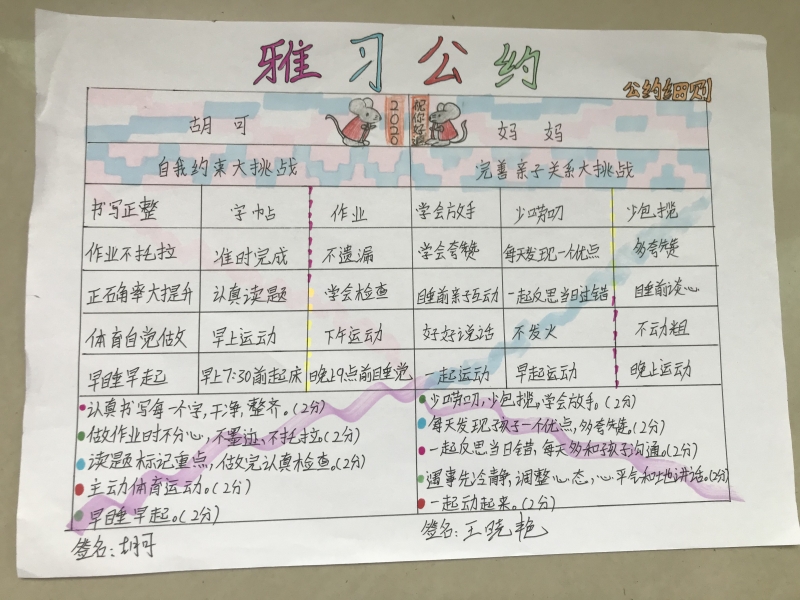 雅习公约
公约细则
胡可 2020 祝你好运 妈妈
自我约束大挑战 完善亲子关系大挑战
书写正整 字帖 作业 学会放手 少唠叨 少包揽
作业不托拉 准时完成 不遗漏 学会夸赞 每天发现一个优点 多夸赞
正确率大提升 认真读题 学会检查 睡前亲子互动 一起反思当日过错 睡前谈心
体育自觉做 早上运动 下午运动 好好说话 不发火 不动粗
早睡早起 早上7:30前起床 晚上9点前睡觉 一起运动 早起运动 晚上运动
认真书写每一个字,干净,整齐。(2分)
做作业时不分心,不墨迹,不托拉。(2分)
读题标记重点,做完认真检查。(2分)
主动体育运动。(2分)
早睡早起。(2分)
签名:胡可
少唠叨,少包揽,学会放手。(2分)
每天发现孩子一个优点,多夸赞。(2分)
一起反思当日错,每天多和孩子沟通。(2分)
遇事先冷静,调整心态,心平气和地讲话。(2分)
一起动起来。(2分)
签名:王晓艳